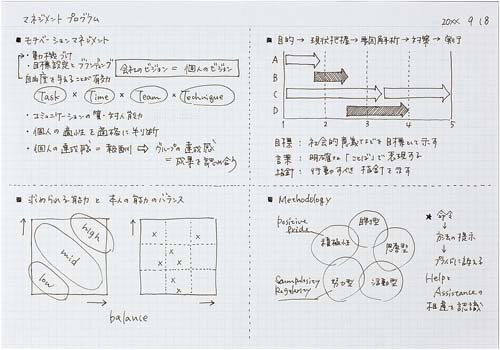 マネジメント プログラム
20XX 9 18
■ モチベーションマネジメント
・動機づけ
・目標設定とプランニング
自由度を与えることが有効
会社のビジョン = 個人のビジョン
Task × Time × Team × Technique
・コミュニケーションの質・対人能力
・個人の適性を適格に判断
・個人の達成感 = 報酬 ⇨ グループの達成感
= 成果を認め合う
■ 目的 → 現状把握 → 要因解析 → 対策 → 実行
1 2 3 4 5
A
B
C
D
1 2 3 4 5
目標 : 社会的意義などを目標として示す
言葉 : 明確な「ことば」で表現する
指針 : 行動すべき指針を示す
■ 求められる能力 と 本人の能力のバランス
high
mid
low
× × × × × ×
balance
■ Methodology
Positive
Pride
自律型
積極性
思考型
努力型
活動型
Compulsory
Regulatory
★ 命令
↓
方法の提示
↓
プライドに訴える
Helpと
Assistanceの
相違を認識